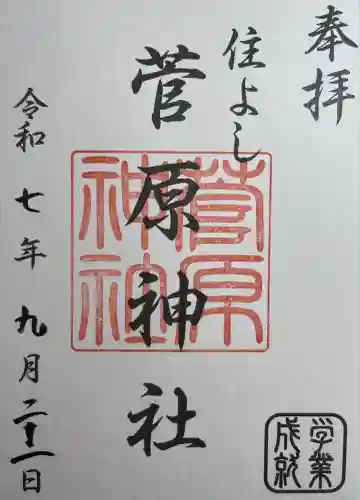 奉拝
住よし
菅原神社
菅原
神社
令和七年九月二十一日
学業
成就